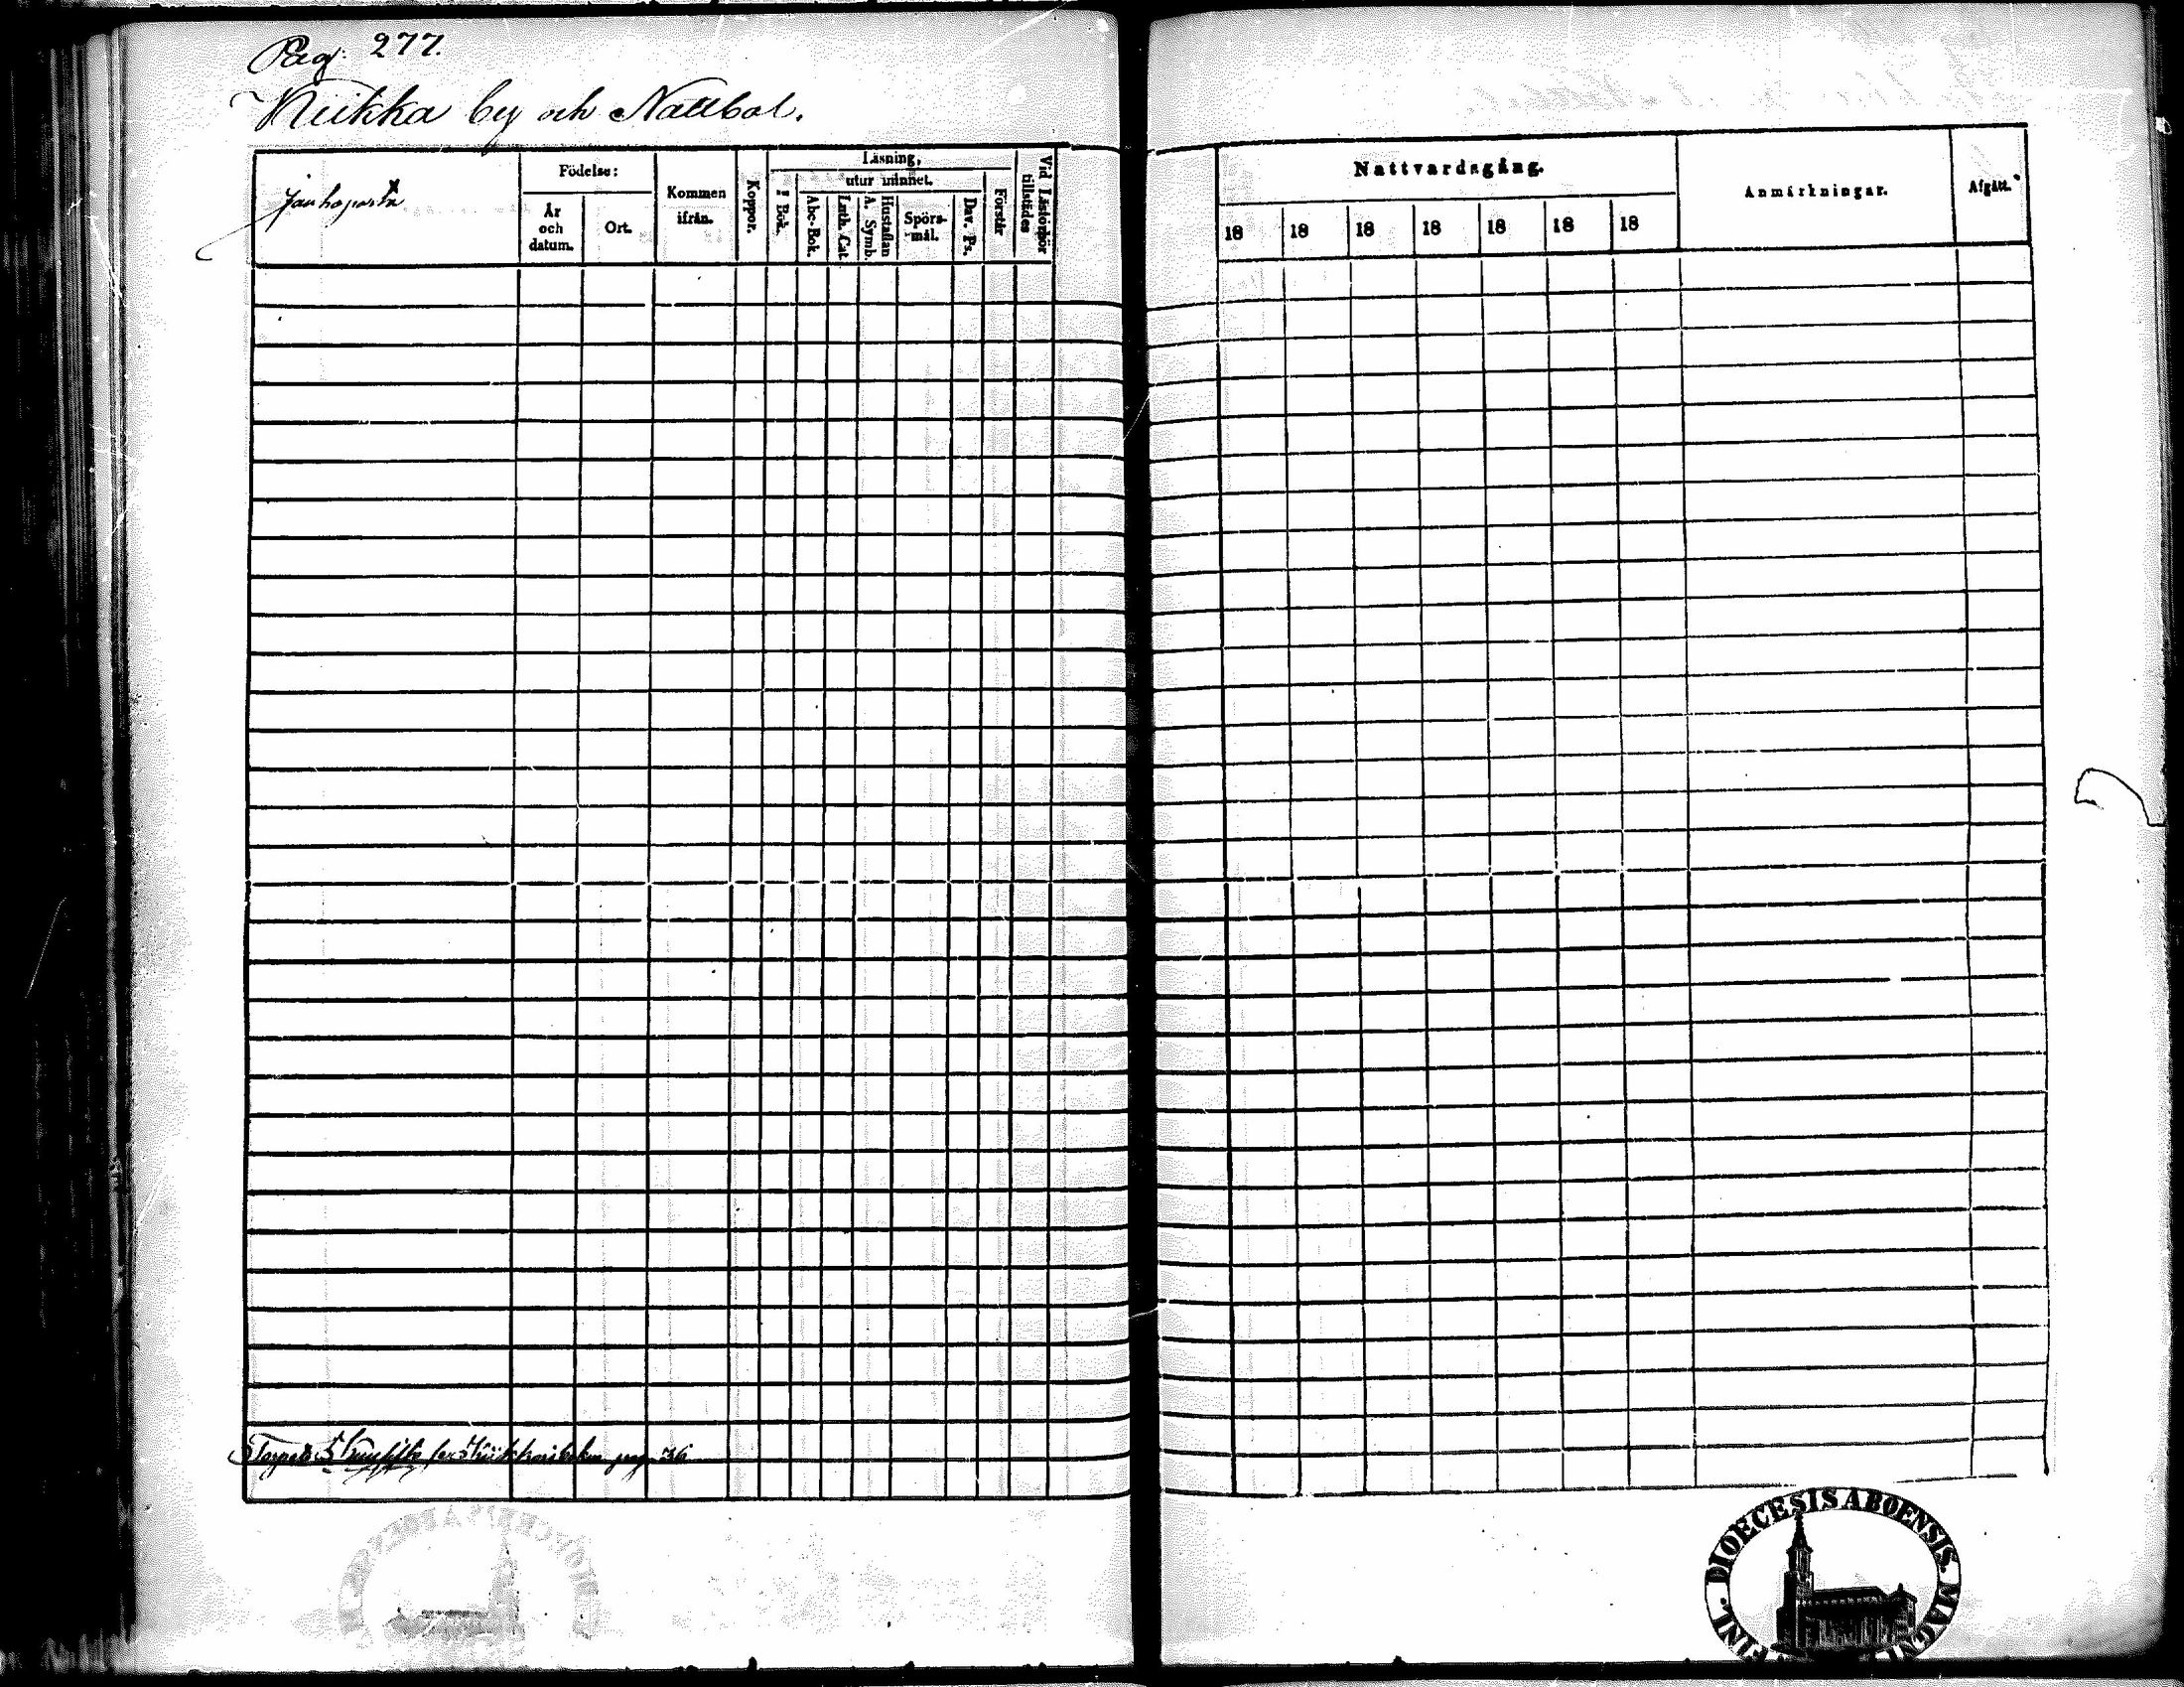 Pag: 277.
Niikka by och Nattbol.
Födelse:
År
och
datum.
Ort.
Kommen
ifrån.
Koppor.
Läsning,
I Bok.
utur minnet.
Abc-Bok.
Luth. Cat
Hustaflan
A. Symb.
Spörs-
mål.
Dav. Ps.
Förstår
Vid Läsförhör
tillstädes
Nattvardsgång.
18 18 18 18 18 18 18
Anmärkningar.
Afgått.
pag 36
FINL. DIOECESIS ABOENSIS. MAGNI